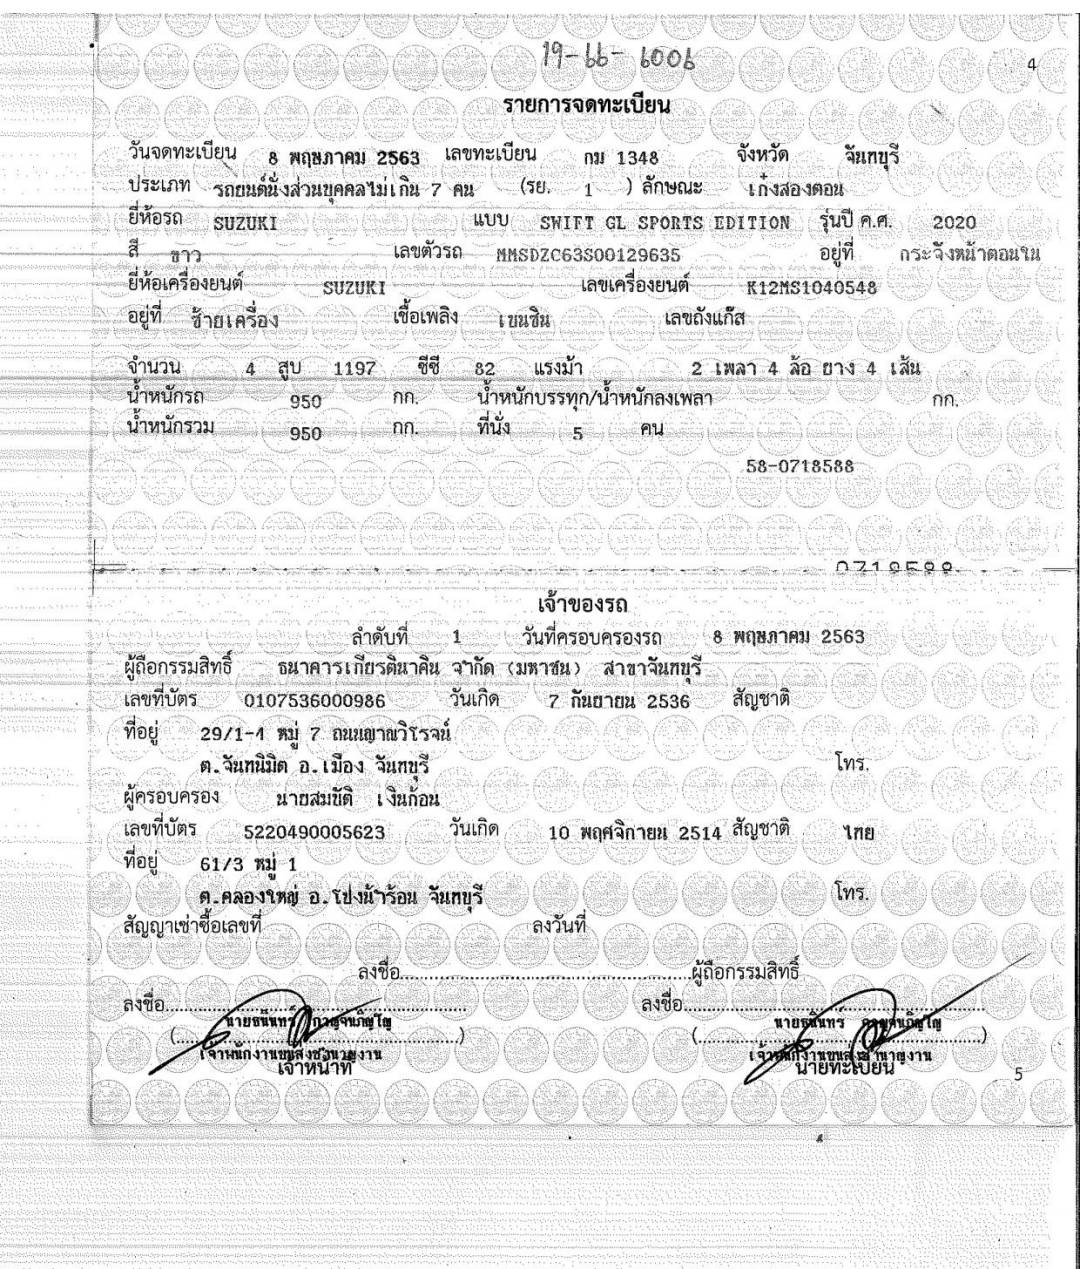 19-66-6006
4
รายการจดทะเบียน
วันจดทะเบียน 8 พฤษภาคม 2563 เลขทะเบียน กม 1348 จังหวัด จันทบุรี
ประเภท รถยนต์นั่งส่วนบุคคลไม่เกิน 7 คน (รย. 1 ) ลักษณะ เก๋งสองตอน
ยี่ห้อรถ SUZUKI แบบ SWIFT GL SPORTS EDITION รุ่นปี ค.ศ. 2020
สี ขาว เลขตัวรถ MMSDZC63S00129635 อยู่ที่ กระจังหน้าตอนใน
ยี่ห้อเครื่องยนต์ SUZUKI เลขเครื่องยนต์ K12MS1040548
อยู่ที่ ซ้ายเครื่อง เชื้อเพลิง เบนซิน เลขถังแก๊ส
จำนวน 4 สูบ 1197 ซีซี 82 แรงม้า 2 เพลา 4 ล้อ ยาง 4 เส้น
น้ำหนักรถ 950 กก. น้ำหนักบรรทุก/น้ำหนักลงเพลา กก.
น้ำหนักรวม 950 กก. ที่นั่ง 5 คน
58-0718588
0718588
เจ้าของรถ
ลำดับที่ 1 วันที่ครอบครองรถ 8 พฤษภาคม 2563
ผู้ถือกรรมสิทธิ์ ธนาคารเกียรตินาคิน จำกัด (มหาชน) สาขาจันทบุรี
เลขที่บัตร 0107536000986 วันเกิด 7 กันยายน 2536 สัญชาติ
ที่อยู่ 29/1-4 หมู่ 7 ถนนญาณวิโรจน์
ต.จันทนิมิต อ.เมือง จันทบุรี โทร.
ผู้ครอบครอง นายสมบัติ เงินก้อน
เลขที่บัตร 5220490005623 วันเกิด 10 พฤศจิกายน 2514 สัญชาติ ไทย
ที่อยู่ 61/3 หมู่ 1
ต.คลองใหญ่ อ.โป่งน้ำร้อน จันทบุรี โทร.
สัญญาเช่าซื้อเลขที่ ลงวันที่
ลงชื่อ ผู้ถือกรรมสิทธิ์
ลงชื่อ ลงชื่อ
( ) ( )
เจ้าพนักงานขนส่งชำนาญงาน เจ้าพนักงานขนส่งชำนาญงาน
เจ้าหน้าที่ นายทะเบียน
5